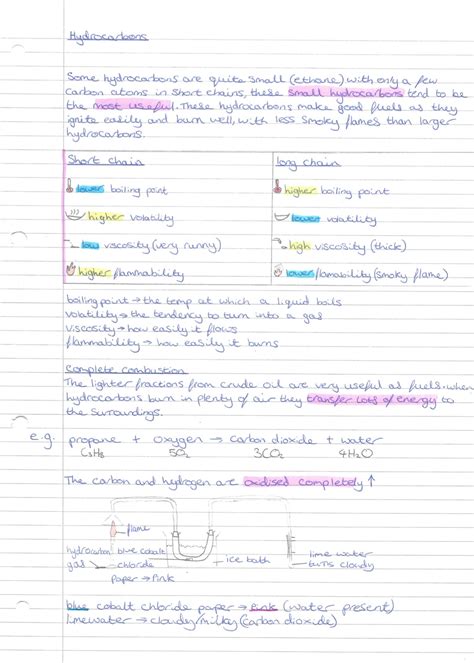 Hydrocarbons
Some hydrocarbons are quite small (ethane) with only a few
carbon atoms in short chains, these small hydrocarbons tend to be
the most useful. These hydrocarbons make good fuels as they
ignite easily and burn well, with less smoky flames than larger
hydrocarbons.
Short chain
lower boiling point
higher volatility
low viscosity (very runny)
higher flammability
long chain
higher boiling point
lower volatility
high viscosity (thick)
lower flamability (smoky flame)
boiling point → the temp at which a liquid boils
volatility → the tendency to turn into a gas
viscosity → how easily it flows
flammability → how easily it burns
Complete combustion
The lighter fractions from crude oil are very useful as fuels. when
hydrocarbons burn in plenty of air they transfer lots of energy to
the surroundings.
e.g. propane + oxygen → carbon dioxide + water
C3H8 5O2 3CO2 4H2O
The carbon and hydrogen are oxidised completely ↑
flame
hydrocarbon
gas
blue cobalt
chloride
paper → Pink
ice bath
lime water
turns cloudy
blue cobalt chloride paper → pink (water present)
limewater → cloudy/milky (carbon dioxide)